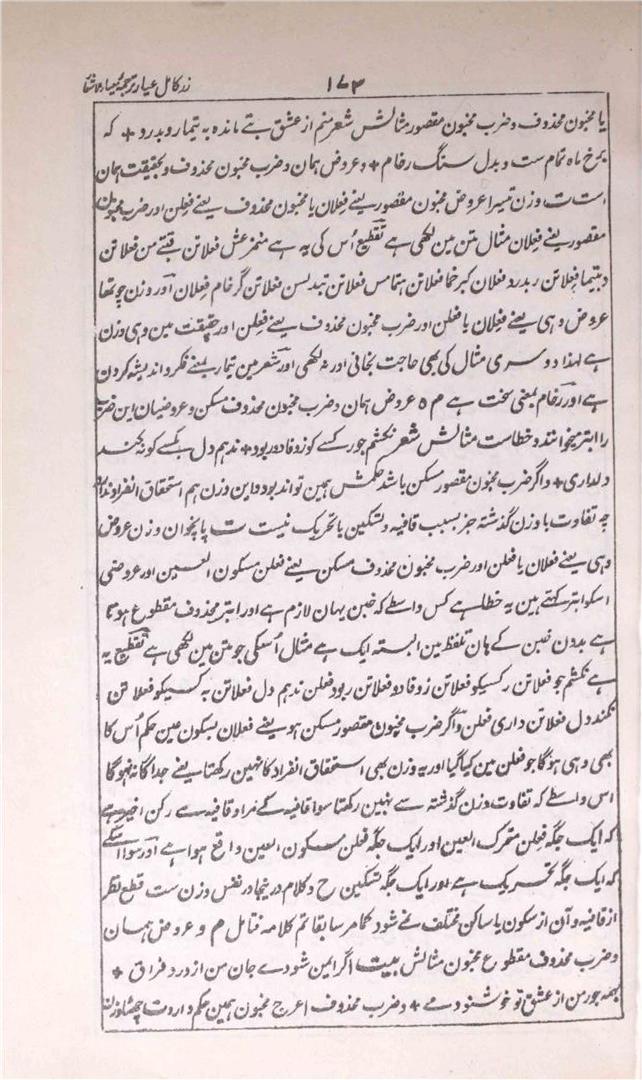 زر کامل عیار ترجمۂ معیار الاشعار ۱۷۳
یا مخبون محذوف و ضرب مخبون مقصور مثالش شعر منم از عشق بتے ماندہ بہ تیمار و بدرد + کہ
برخ ماہ تمام ست و بدل سنگ رخام + و عروض ہمان و ضرب مخبون محذوف و بحقیقت ہمان
است ت وزن تیسرا عروض مخبون مقصور یعنے فعلان یا مخبون محذوف یعنے فعلن اور ضرب مخبون
مقصور یعنے فعلان مثال متن مین لکھی ہے تقطیع اُس کی یہ ہے منمزعش فعلاتن قبتے من فعلاتن
دبتیما فعلاتن ربدرد فعلان کبرخما فعلاتن ہتمامس فعلاتن تبدلسن فعلاتن گرخام فعلان اور وزن چوتھا
عروض وہی یعنے فعلان یا فعلن اور ضرب مخبون محذوف یعنے فعلن اور حقیقت مین وہی وزن
ہے لہذا دوسری مثال کی بھی حاجت بجانی اور نہ لکھی اور شعر مین تیمار بمعنے فکر و اندیشہ کردن
ہے اور رخام بمعنی سخت ہے م ہ عروض ہمان و ضرب مخبون محذوف مسکن و عروضیان این ضرب
را ابتر میخوانند و خطاست مثالش شعر نکشم جور کسے کو ز وفا دور بود + ندہم دل بکسے کو نہ کند
دلداری + و اگر ضرب مخبون مقصور مسکن باشد حکمش ہمین تواند بود و این وزن ہم استحقاق انفراد ندارد
چہ تفاوت با وزن گذشتہ جز بسبب قافیہ و تسکین یا تحریک نیست ت پانچوان وزن عروض
وہی یعنے فعلان یا فعلن اور ضرب مخبون محذوف مسکن یعنے فعلن بسکون العین اور عروضی
اسکو ابتر کہتے ہین یہ خطا ہے کس واسطے کہ خبن یہان لازم ہے اور ابتر محذوف مقطوع ہوتا
ہے بدون خبن کے ہان تلفظ مین البتہ ایک ہے مثال اُسکی جو متن مین لکھی ہے تقطیع یہ
ہے نکشم جو فعلاتن رکسیکو فعلاتن زوفا دو فعلاتن ربود فعلن ندہم دل فعلاتن بہ کسیکو فعلاتن
نکند دل فعلاتن داری فعلن و اگر ضرب مخبون مقصور مسکن ہو یعنے فعلان بسکون عین حکم اُس کا
بھی وہی ہوگا جو فعلن مین کیا گیا اور یہ وزن بھی استحقاق انفراد کا نہین رکھتا یعنے جداگانہ نہوگا
اس واسطے کہ تفاوت وزن گذشتہ سے نہین رکھتا سوا قافیہ کے مراد قافیہ سے رکن اخیر ہے
کہ ایک جگہ فعلن متحرک العین اور ایک جگہ فعلن بسکون العین واقع ہوا ہے اور سوا اسکے
کہ ایک جگہ تحریک ہے اور ایک جگہ تسکین ح و کلام درینجا در نفس وزن ست قطع نظر
از قافیہ و آن از سکون یا ساکن مختلف نمے شود کما مر سابقا تم کلامہ فتامل م و عروض ہمان
و ضرب محذوف مقطوع مخبون مثالش بیت اگر ایمن شودے جان من از درد فراق +
بہمہ جور من از عشق تو خوشنودمے + و ضرب محذوف اعرج مخبون ہمین حکم دارد ت چھٹا وزن